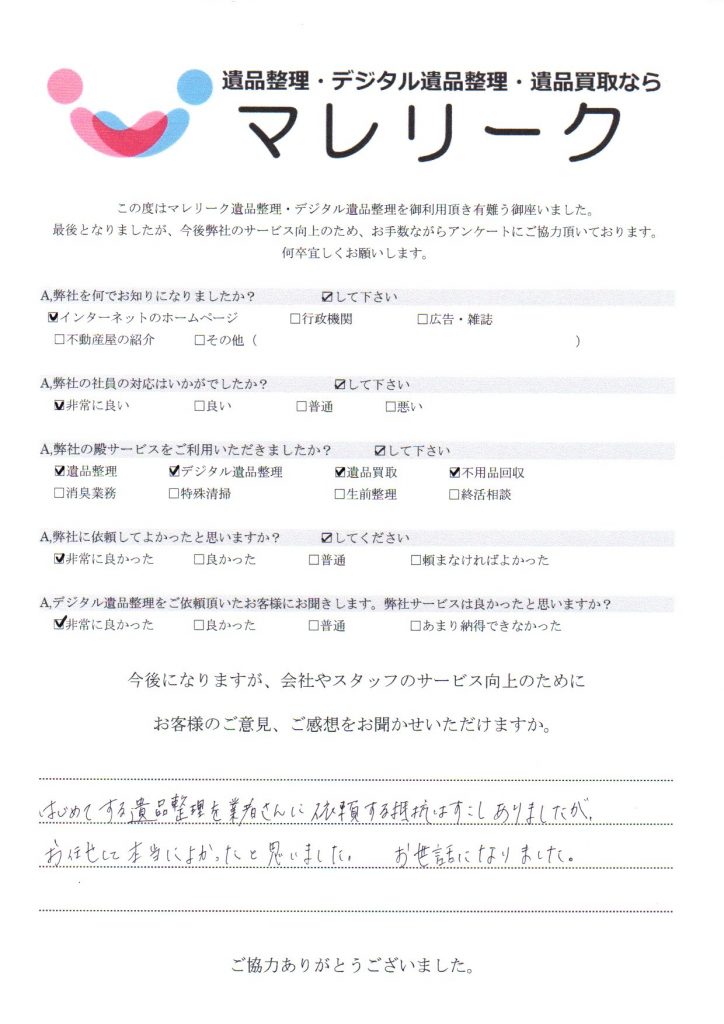 遺品整理・デジタル遺品整理・遺品買取なら
マレリーク
この度はマレリーク遺品整理・デジタル遺品整理を御利用頂き有難う御座いました。
最後となりましたが、今後弊社のサービス向上のため、お手数ながらアンケートにご協力頂いております。
何卒宜しくお願いします。
A,弊社を何でお知りになりましたか？ ☑して下さい
☑インターネットのホームページ □行政機関 □広告・雑誌
□不動産屋の紹介 □その他（ ）
A,弊社の社員の対応はいかがでしたか？ ☑して下さい
☑非常に良い □良い □普通 □悪い
A,弊社の殿サービスをご利用いただきましたか？ ☑して下さい
☑遺品整理 ☑デジタル遺品整理 ☑遺品買取 ☑不用品回収
□消臭業務 □特殊清掃 □生前整理 □終活相談
A,弊社に依頼してよかったと思いますか？ ☑してください
☑非常に良かった □良かった □普通 □頼まなければよかった
A,デジタル遺品整理をご依頼頂いたお客様にお聞きします。弊社サービスは良かったと思いますか？
☑非常に良かった □良かった □普通 □あまり納得できなかった
今後になりますが、会社やスタッフのサービス向上のために
お客様のご意見、ご感想をお聞かせいただけますか。
はじめてする遺品整理を業者さんに依頼する抵抗はすこしありましたが、
お任せして本当によかったと思いました。 お世話になりました。
ご協力ありがとうございました。